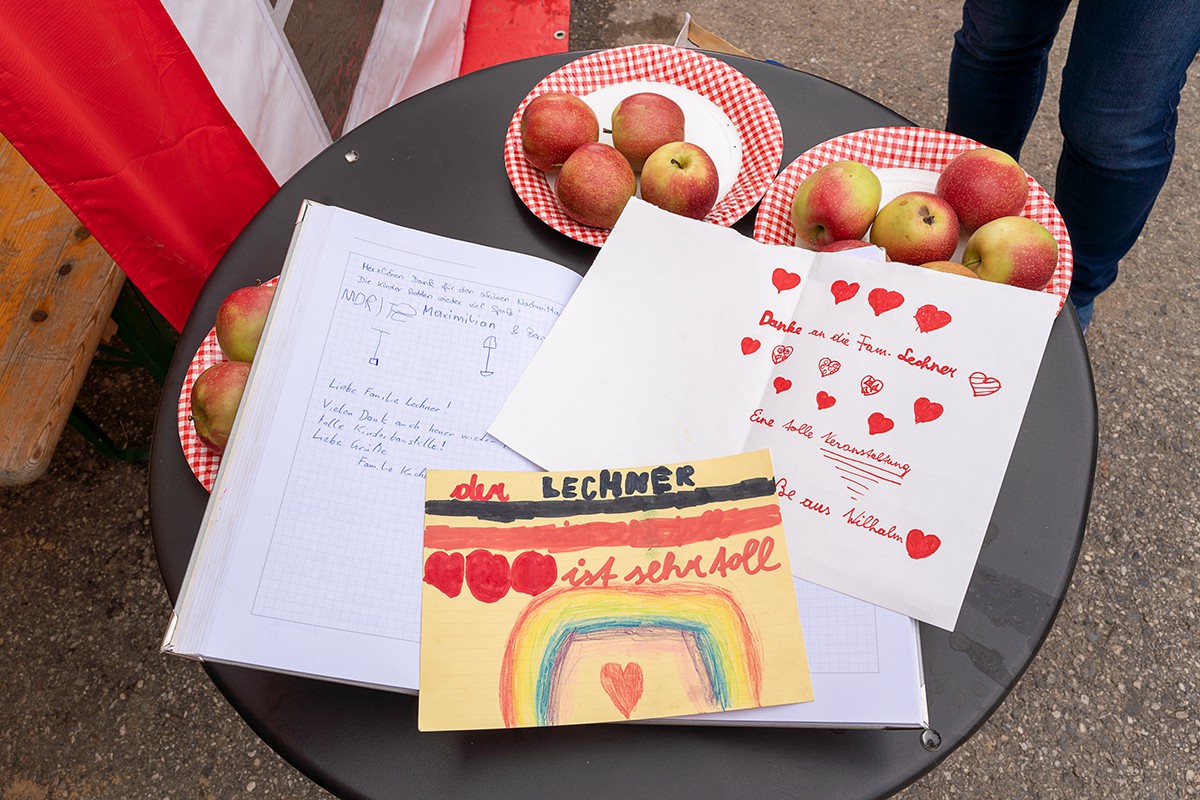 Herzlichen Dank für den schönen Nachmittag
Die Kinder hatten wieder viel Spaß!
Maximilian &
Liebe Familie Lechner!
Vielen Dank auch heuer wieder
tolle Kinderbaustelle!
Liebe Grüße
Familie
Danke an die Fam. Lechner
Eine tolle Veranstaltung
ße aus Wilhalm
der LECHNER
ist sehr toll